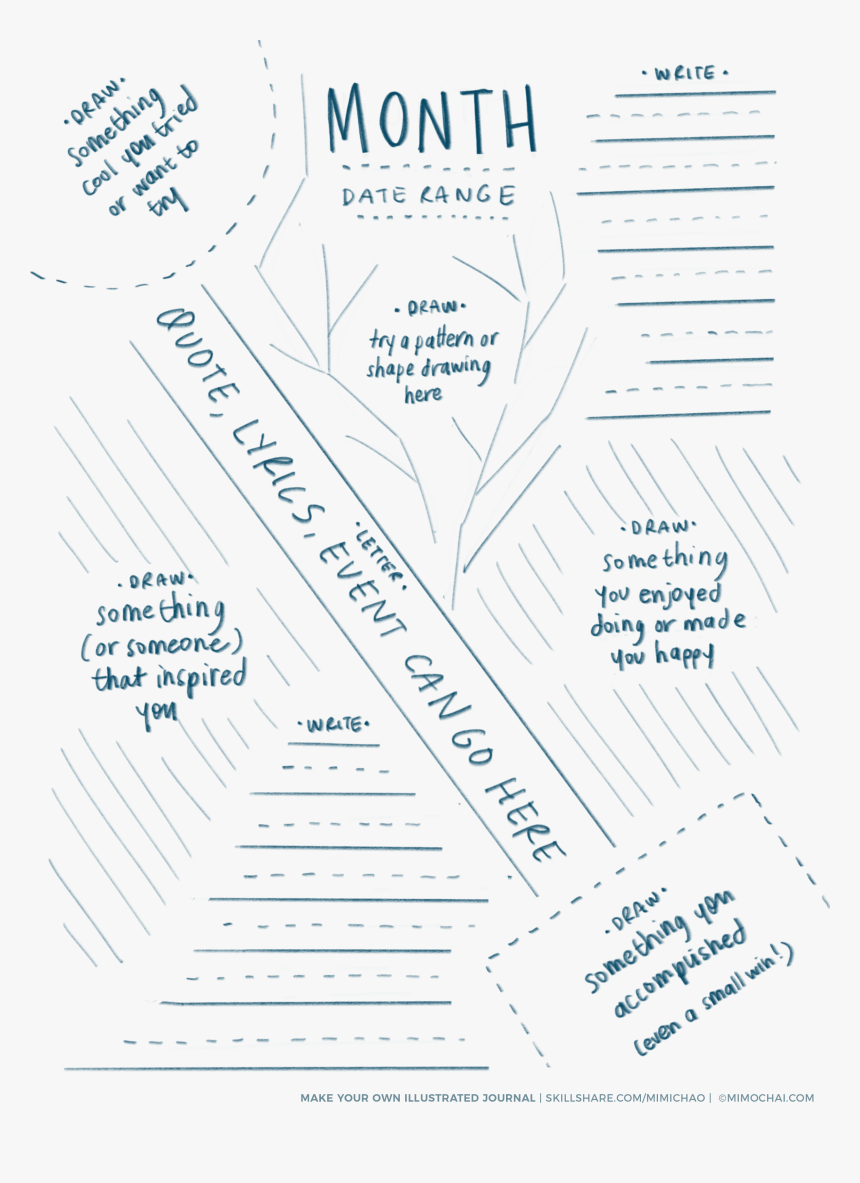 ·DRAW·
something
cool you tried
or want to
try
MONTH
DATE RANGE
·WRITE·
·DRAW·
try a pattern or
shape drawing
here
QUOTE, LYRICS, EVENT CAN GO HERE
·LETTER·
·DRAW·
something
you enjoyed
doing or made
you happy
·DRAW·
something
(or someone)
that inspired
you
·WRITE·
·DRAW·
something you
accomplished
(even a small win!)
MAKE YOUR OWN ILLUSTRATED JOURNAL | SKILLSHARE.COM/MIMICHAO | ©MIMOCHAI.COM